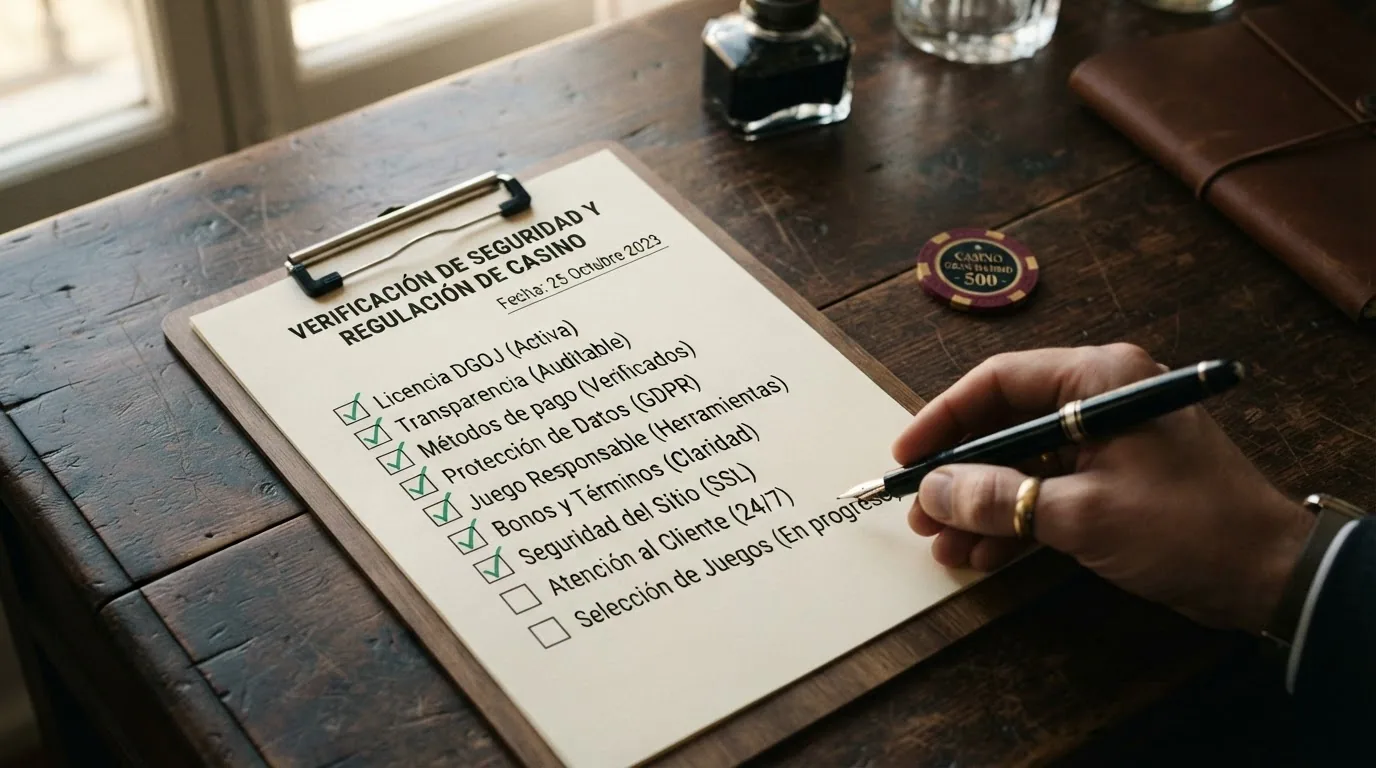 VERIFICACIÓN DE SEGURIDAD Y
REGULACIÓN DE CASINO
Fecha: 25 Octubre 2023
Licencia DGOJ (Activa)
Transparencia (Auditable)
Métodos de pago (Verificados)
Protección de Datos (GDPR)
Juego Responsable (Herramientas)
Bonos y Términos (Claridad)
Seguridad del Sitio (SSL)
Atención al Cliente (24/7)
Selección de Juegos (En progreso)
CASINO
500